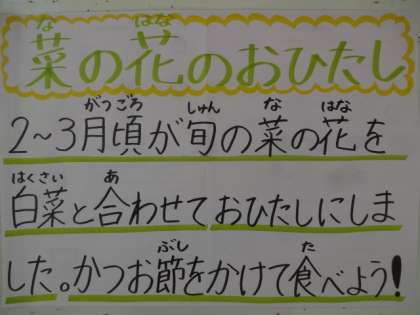 菜の花のおひたし
2～3月頃が旬の菜の花を
白菜と合わせておひたしにしま
した。かつお節をかけて食べよう!